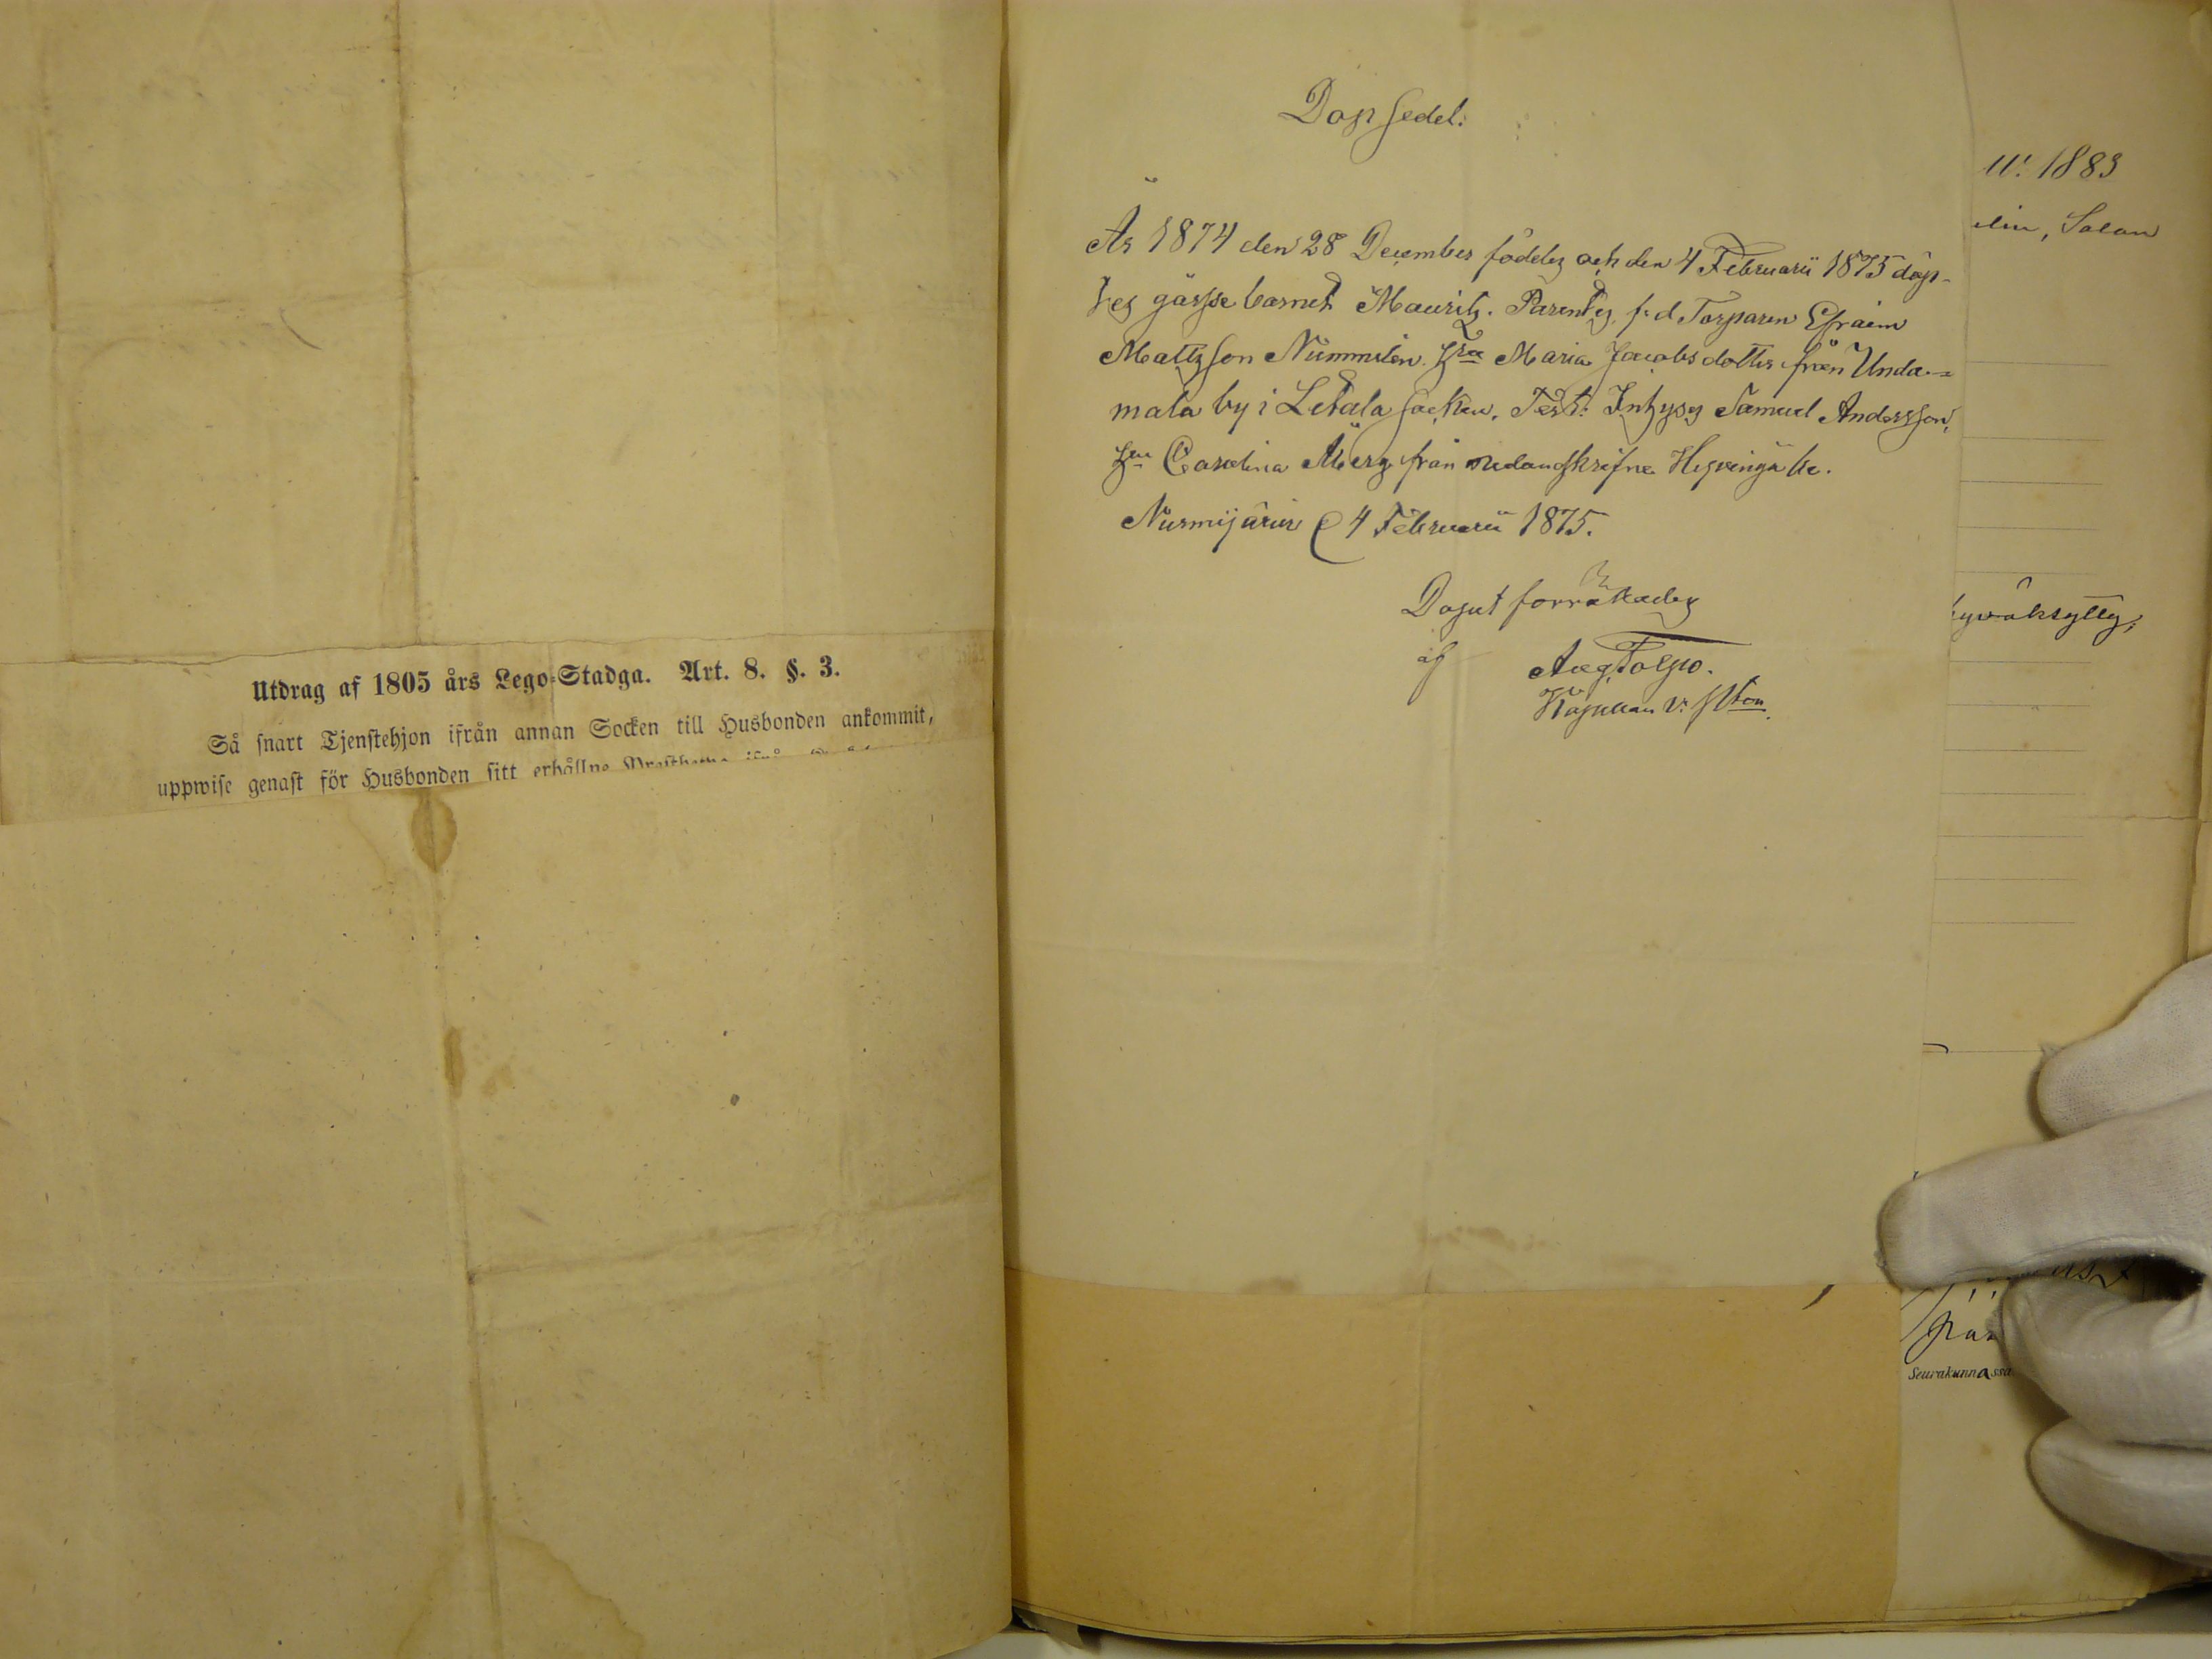 Utdrag af 1805 års Lego-Stadga. Art. 8. §. 3.
Så snart Tjenstehjon ifrån annan Socken till Husbonden ankommit,
uppwise genast för Husbonden sitt erhållne
Dop sedel:
År 1874 den 28 December föddes och den 4 Februarii 1875 döp-
tes gåsse barnet Mauritz. Parentes f:d Torparen Efraim
Mattsson Nummelin Hru Maria Jacobsdotter från Unda-
mala by i Letala socken. Test: Inhyses Samuel Andersson,
Carolina Åberg från
Nurmijärvi 4 Februarii 1875.
Doput förrättades
af
1883
lin, Salon
Seurakunnassa